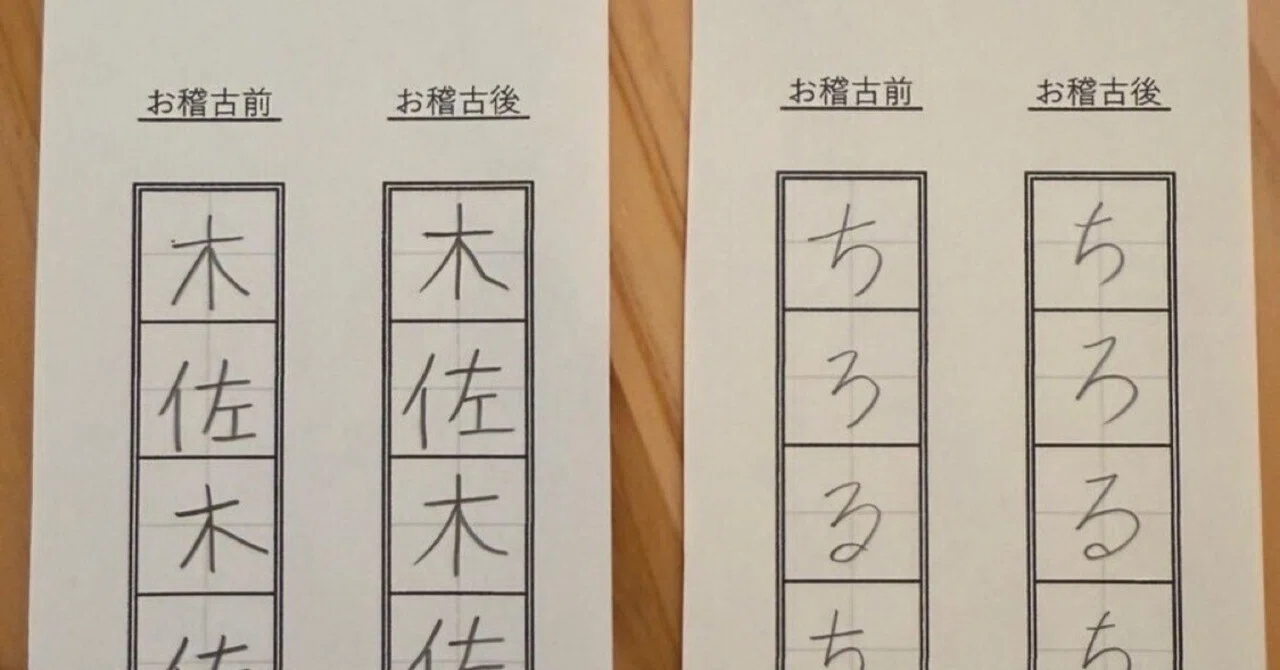 お稽古前
木
佐
木
佐
お稽古後
木
佐
木
佐
お稽古前
ち
ろ
る
ち
お稽古後
ち
ろ
る
ち